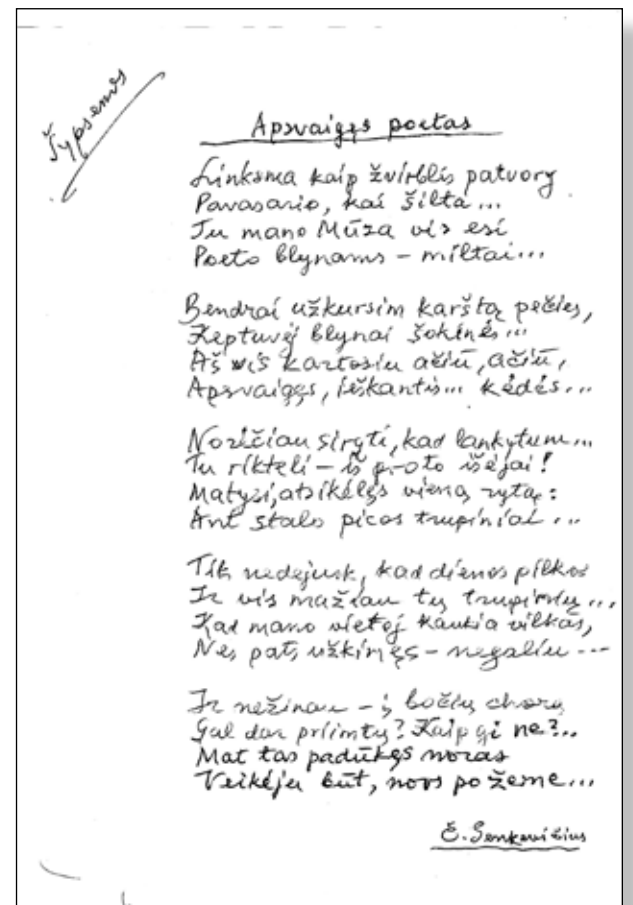 Šypsenos
Apsvaigęs poetas
Linksma kaip žvirblis patvory
Pavasario, kai šilta...
Tu mano Mūza vis esi
Poeto blynams – miltai...
Bendrai užkursim karštą pečių,
Keptuvėj blynai šokinės...
Aš vis kartosiu ačiū, ačiū,
Apsvaigęs, ieškantis... kėdės...
Norėčiau sirgti, kad lankytum...
Tu rikteli – iš proto išėjai!
Matysi, atsikėlęs vieną rytą:
Ant stalo picos trupiniai...
Tik nedejuok, kad dienos pilkos
Ir vis mažiau tų trupinių...
Kad mano vietoj kaukia vilkas,
Nes pats užkimęs – negaliu...
Ir nežinau – į bočių chorą
Gal dar priimtų? Kaip gi ne?..
Mat tas padūkęs noras
Veikėju būt, nors po žeme...
Č. Senkevičius